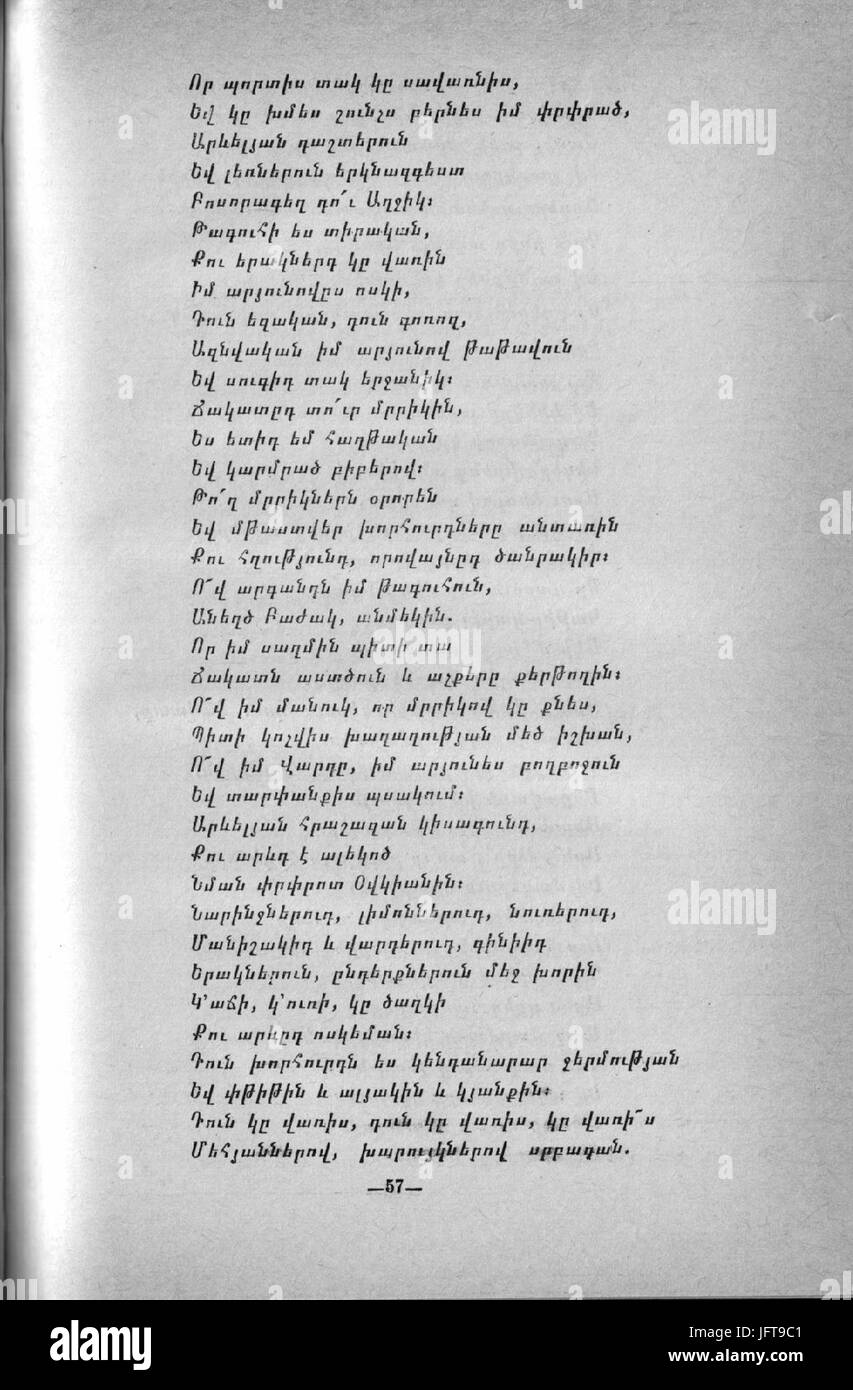 Որ պորտիս տակ կը սավառնիս,
Եվ կը խմես շունչս բերնես իմ փրփրած,
Արևելյան դաշտերուն
Եվ լեռներուն երկնազգեստ
Բոսորագեղ դո՜ւ Աղջիկ։
Թագուհի ես տիրական,
Քու երակներդ կը վառին
Իմ արյունովըս ոսկի,
Դուն եզական, դուն գոռոզ,
Ազնվական իմ արյունով թաթավուն
Եվ սուգիդ տակ երջանիկ։
Ճակատըդ տո՛ւր մրրիկին,
Ես ետիդ եմ հաղթական
Եվ կարմրած բիբերով։
Թո՛ղ մրրիկներն օրորեն
Եվ մթաստվեր խորհուրդները անտառին
Քու հղությունդ, որովայնըդ ծանրակիր։
Ո՜վ արգանդն իմ թագուհուն,
Անեղծ Բաժակ, անմեկին.
Որ իմ սաղմին պիտի տա
Ճակատն աստծուն և աչքերը քերթողին։
Ո՜վ իմ մանուկ, որ մրրիկով կը քնես,
Պիտի կոչվիս խաղաղության մեծ իշխան,
Ո՜վ իմ Վարդը, իմ արյունես բողբոջուն
Եվ տարփանքիս պսակում։
Արևելյան հրաշազան կիսագունդ,
Քու արևդ է ալեկոծ
Նման փրփրոտ Օվկիանին։
Նարինջներուդ, լիմոններուդ, նուռերուդ,
Մանիշակիդ և վարդերուդ, գինիիդ
Երակներուն, ընդերքներուն մեջ խորին
Կ՚աճի, կ՚ուռի, կը ծաղկի
Քու արևըդ ոսկեման։
Դուն խորհուրդն ես կենդանարար ջերմության
Եվ փթիթին և ալյակին և կյանքին։
Դուն կը վառիս, դուն կը վառիս, կը վառի՜ս
Մեհյաններով, խարույկներով սրբազան.
—57—
alamy
Image ID: JFT9C1
www.alamy.com